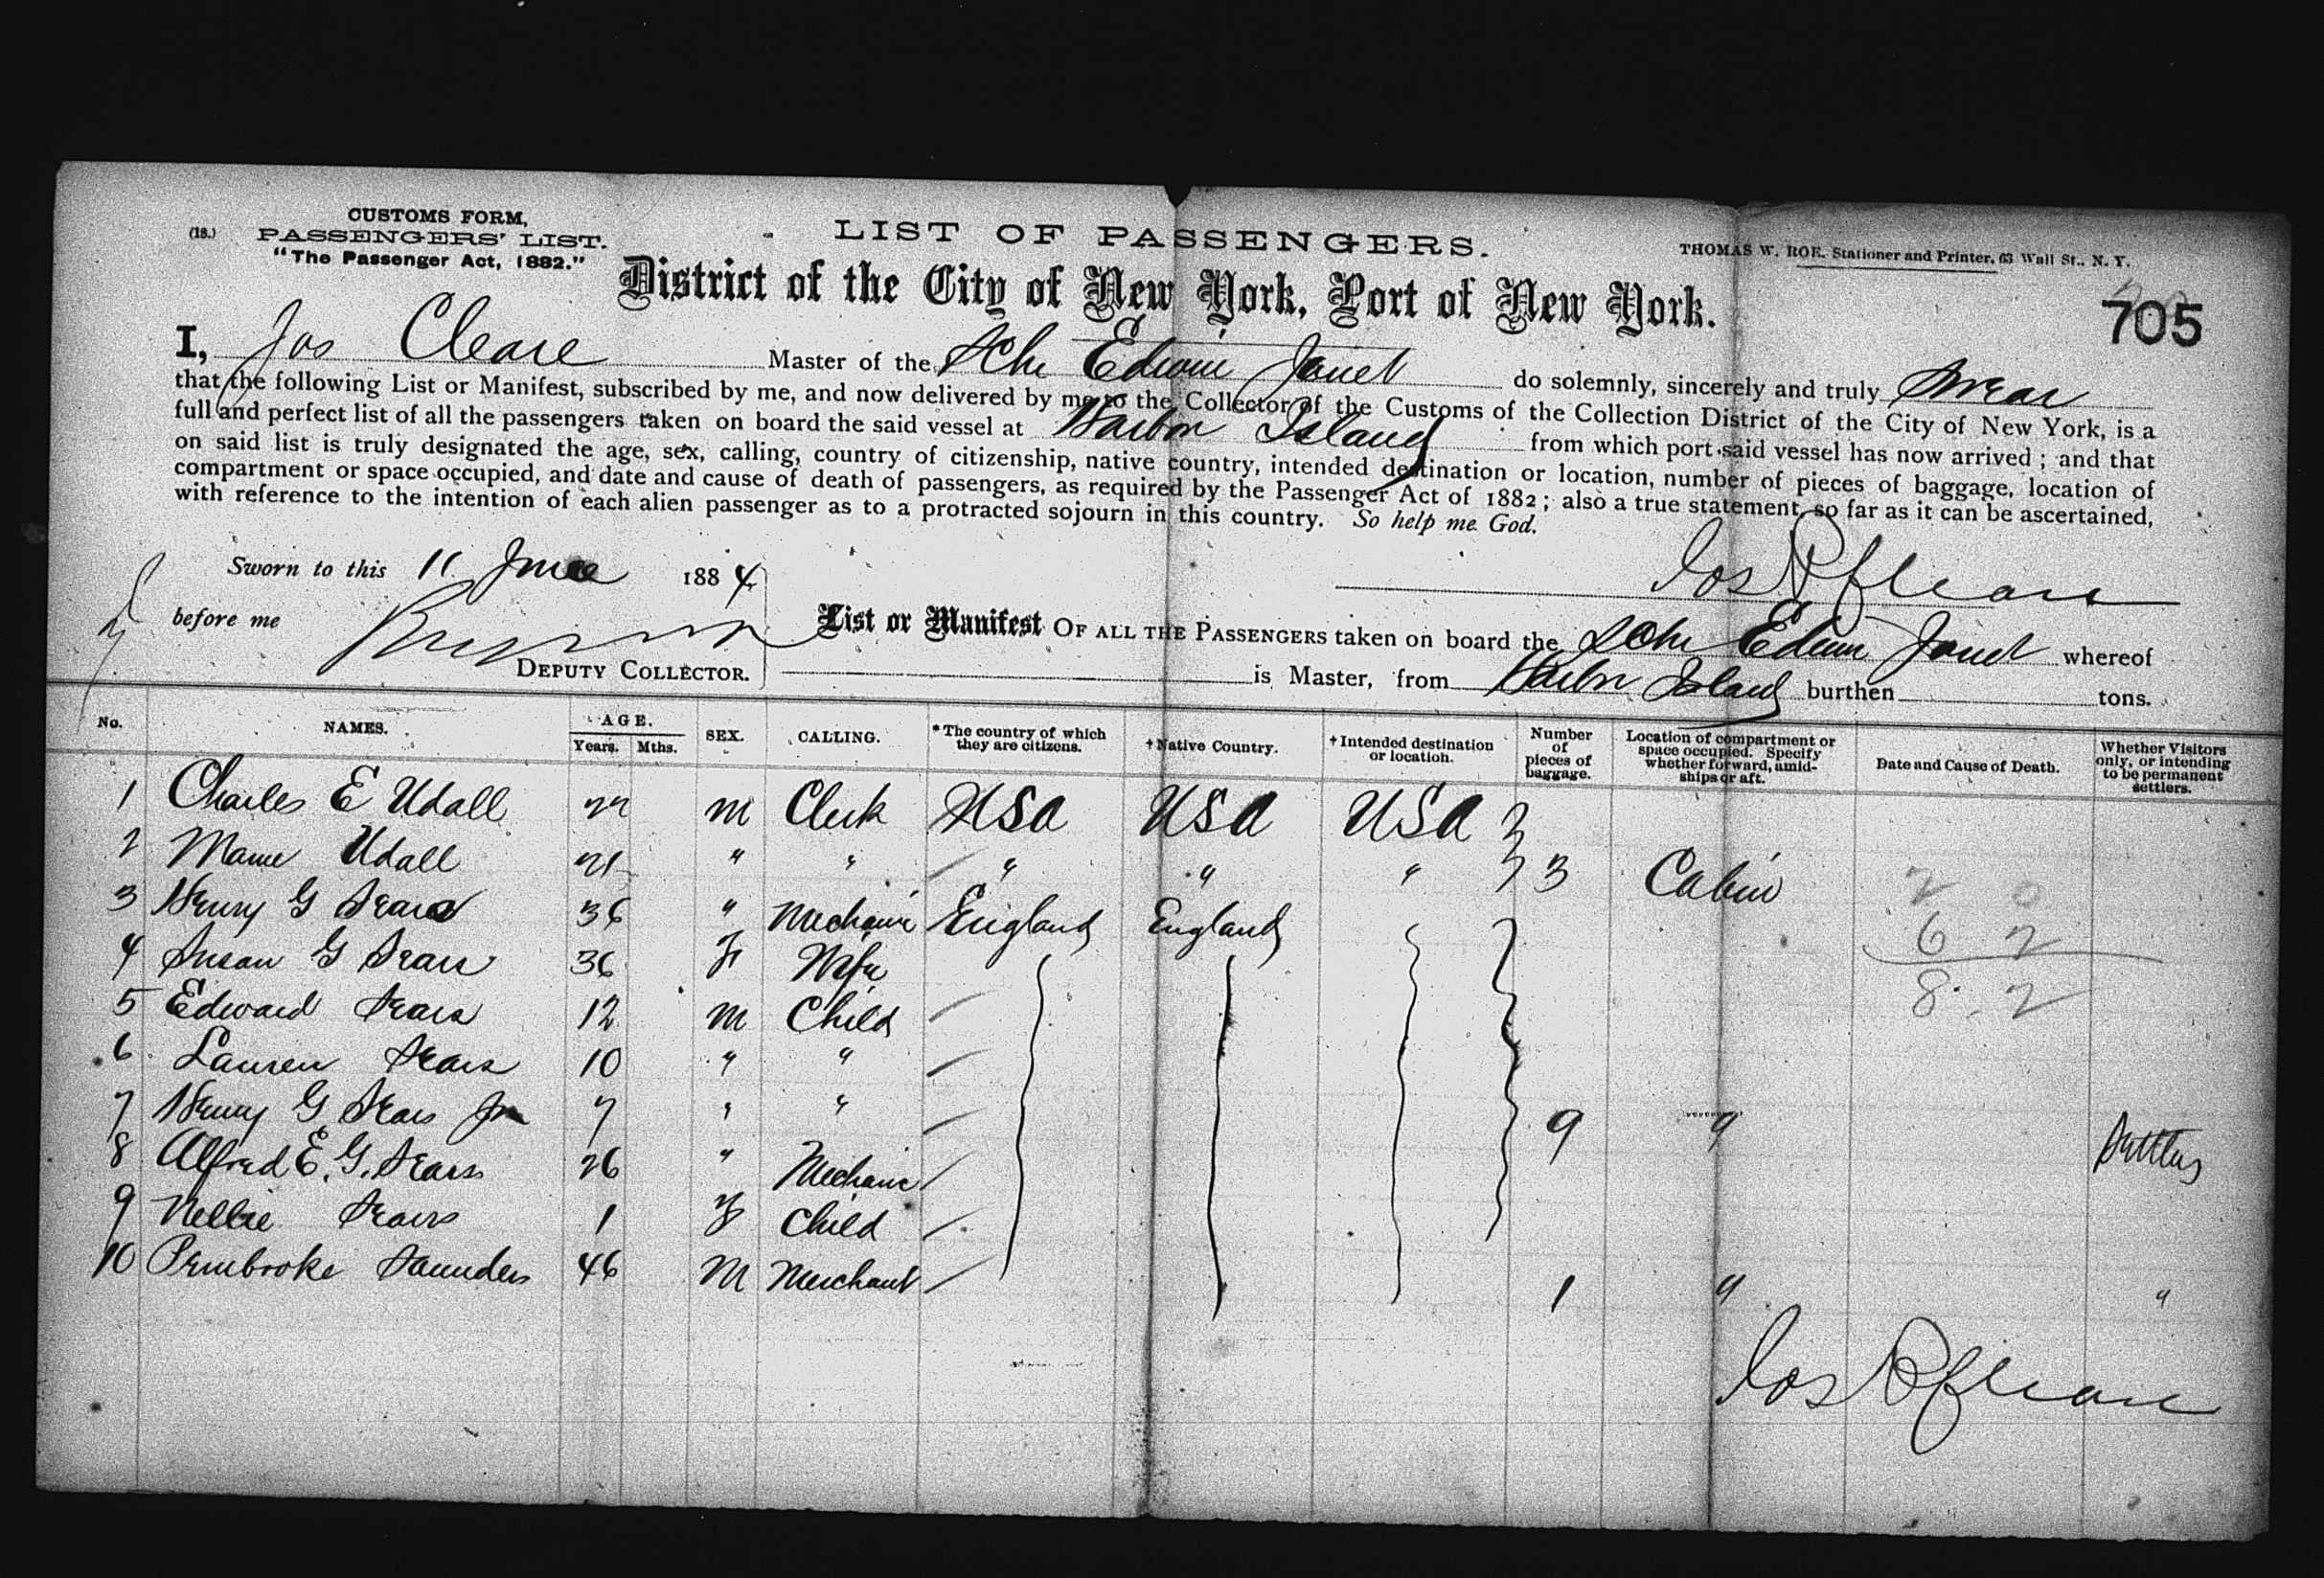 CUSTOMS FORM,
(18.) PASSENGERS' LIST.
"The Passenger Act, 1882."
LIST OF PASSENGERS.
THOMAS W. ROE. Stationer and Printer, 63 Wall St., N. Y.
District of the City of New York, Port of New York.
705
I, Jos Cleare Master of the Schr Edwin Janet do solemnly, sincerely and truly Swear
that the following List or Manifest, subscribed by me, and now delivered by me to the Collector of the Customs of the Collection District of the City of New York, is a
full and perfect list of all the passengers taken on board the said vessel at Harbor Island from which port said vessel has now arrived; and that
on said list is truly designated the age, sex, calling, country of citizenship, native country, intended destination or location, number of pieces of baggage, location of
compartment or space occupied, and date and cause of death of passengers, as required by the Passenger Act of 1882; also a true statement, so far as it can be ascertained,
with reference to the intention of each alien passenger as to a protracted sojourn in this country. So help me God.
Sworn to this 11 June 1884
Jos R Cleare
before me
DEPUTY COLLECTOR.
List or Manifest OF ALL THE PASSENGERS taken on board the Schr Edwin Janet whereof
is Master, from Harbor Island burthen tons.
No. NAMES. AGE. Years. Mths. SEX. CALLING. *The country of which they are citizens. †Native Country. †Intended destination or location. Number of pieces of baggage. Location of compartment or space occupied. Specify whether forward, amidships or aft. Date and Cause of Death. Whether Visitors only, or intending to be permanent settlers.
1 Charles E Udall 22 M Clerk USA USA USA
2 Mame Udall 21 " " " " " 3 Cabin 2 0
3 Henry G Sears 36 " Mechanic England England 6 2
4 Susan G Sears 36 F Wife 8 2
5 Edward Sears 12 M Child
6 Lauren Sears 10 " "
7 Henry G Sears Jr 7 " " 9 " Settlers
8 Alfred E. G. Sears 26 " Mechanic
9 Nellie Sears 1 F Child
10 Pembroke Saunders 46 M Merchant 1 " "
Jos R Cleare